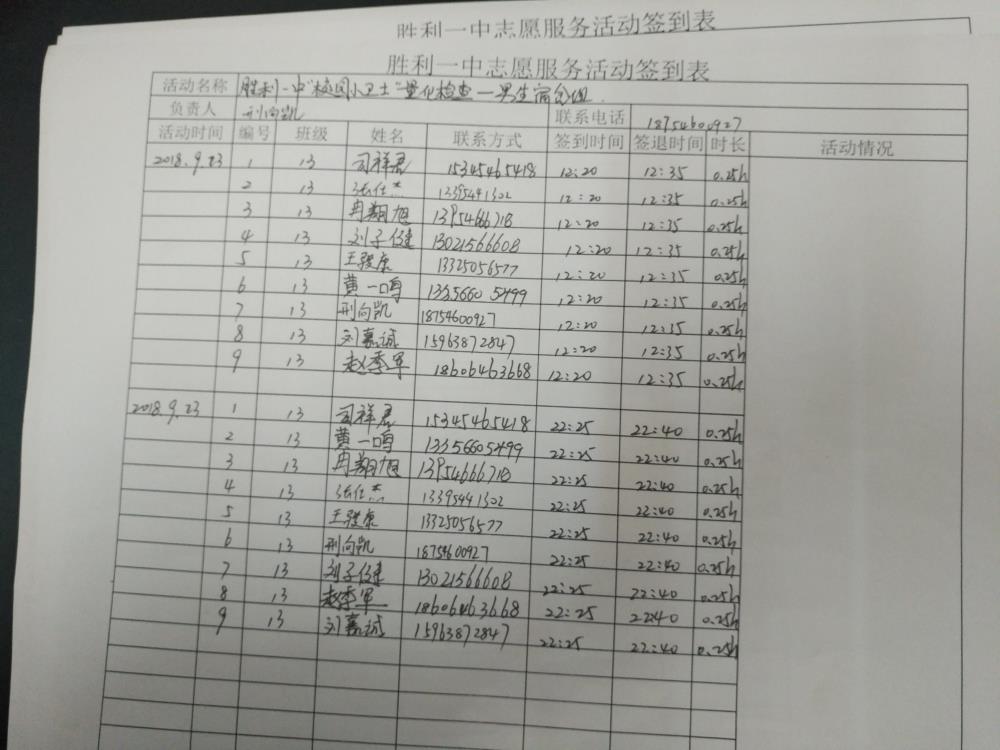 胜利一中志愿服务活动签到表
胜利一中志愿服务活动签到表
活动名称 胜利一中"校园小卫士"量化检查—男生宿舍组.
负责人 刑向凯 联系电话 18754600927
活动时间 编号 班级 姓名 联系方式 签到时间 签退时间 时长 活动情况
2018.9.23 1 13 司祥君 15345465418 12:20 12:35 0.25h
2 13 张仕杰 13395491302 12:20 12:35 0.25h
3 13 冉翔旭 13954666718 12:20 12:35 0.25h
4 13 刘子健 13021566608 12:20 12:35 0.25h
5 13 王骏康 13325056577 12:20 12:35 0.25h
6 13 黄一鸣 13356605499 12:20 12:35 0.25h
7 13 刑向凯 18754600927 12:20 12:35 0.25h
8 13 刘嘉诚 15963872847 12:20 12:35 0.25h
9 13 赵季军 18606463668 12:20 12:35 0.25h
2018.9.23 1 13 司祥君 15345465418 22:25 22:40 0.25h
2 13 黄一鸣 13356605499 22:25 22:40 0.25h
3 13 冉翔旭 13954666718 22:25 22:40 0.25h
4 13 张仕杰 13395491302 22:25 22:40 0.25h
5 13 王骏康 13325056577 22:25 22:40 0.25h
6 13 刑向凯 18754600927 22:25 22:40 0.25h
7 13 刘子健 13021566608 22:25 22:40 0.25h
8 13 赵季军 18606463668 22:25 2240 0.25h
9 13 刘嘉诚 15963872847 22:25 22:40 0.25h